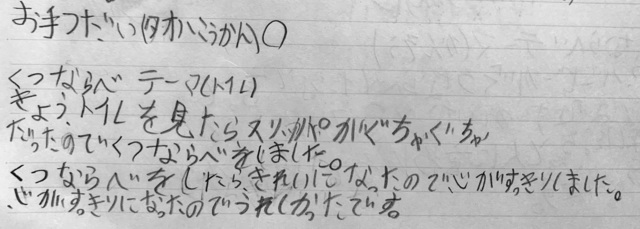 お手つだい(タオルこうかん)〇
くつならべ テーマ(トイレ)
きょう、トイレを見たらスリッパがぐちゃぐちゃ
だったのでくつならべをしました。
くつならべをしたら、きれいになったので、心がすっきりしました。
心がすっきりになったのでうれしかったです。